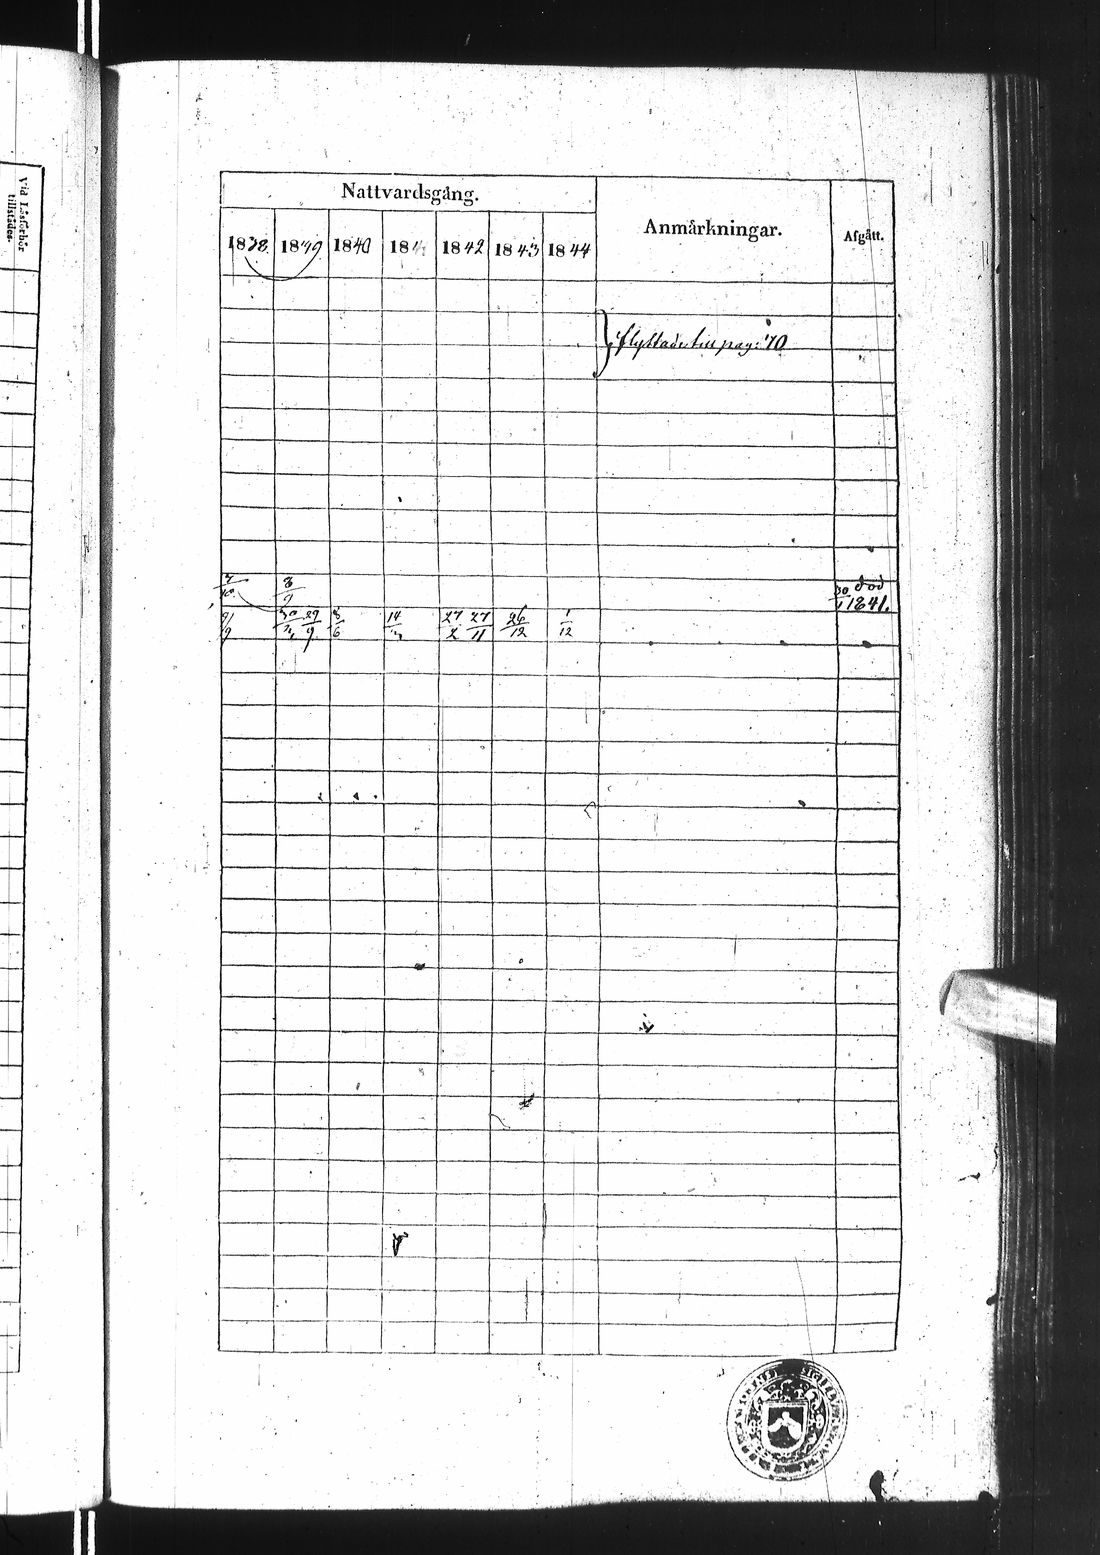 Vid Läsförhör
tillstädes.
Nattvardsgång.
Anmärkningar.
Afgått.
1838. 1839 1840 184 1842 1843 1844
flyttade till pag: 70
död
30/1 1841.
7/10 8/9
9/9 29/9 8/6 14 27/2 27/11 26/12 1/12